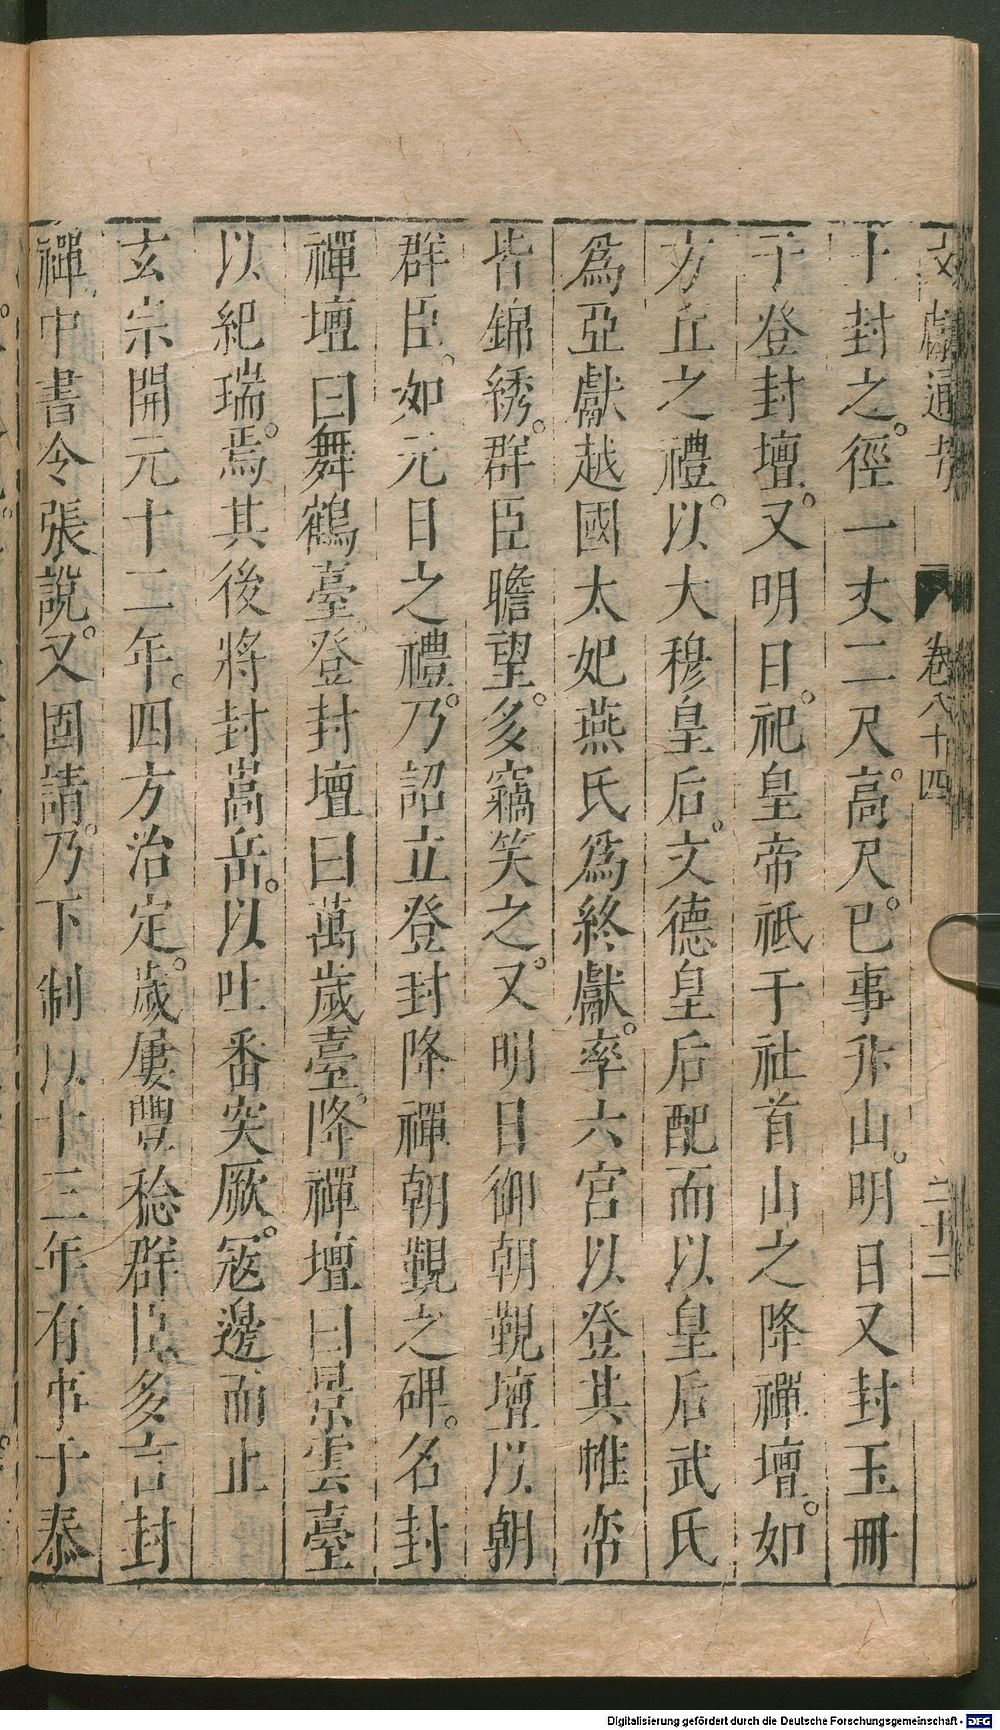 文獻通考　卷八十四　二十二
十封之。徑一丈二尺。高尺。已事升山。明日又封玉冊
于登封壇。又明日。祀皇帝祇于社首山之降禪壇。如
方丘之禮。以大穆皇后。文德皇后配而以皇后武氏
爲亞獻越國太妃燕氏爲終獻。率六宮以登其帷帟
皆錦綉。群臣瞻望。多竊笑之。又明日御朝覲壇以朝
群臣。如元日之禮。乃詔立登封降禪朝覲之碑。名封
禪壇曰舞鶴臺。登封壇曰萬歲臺。降禪壇曰景雲臺
以紀瑞。焉其後將封嵩岳。以吐番突厥。寇邊而止
玄宗開元十二年。四方治定。歲屢豐稔群臣多言封
禪中書令張說。又固請。乃下制以十三年有事于泰
Digitalisierung gefördert durch die Deutsche Forschungsgemeinschaft - DFG